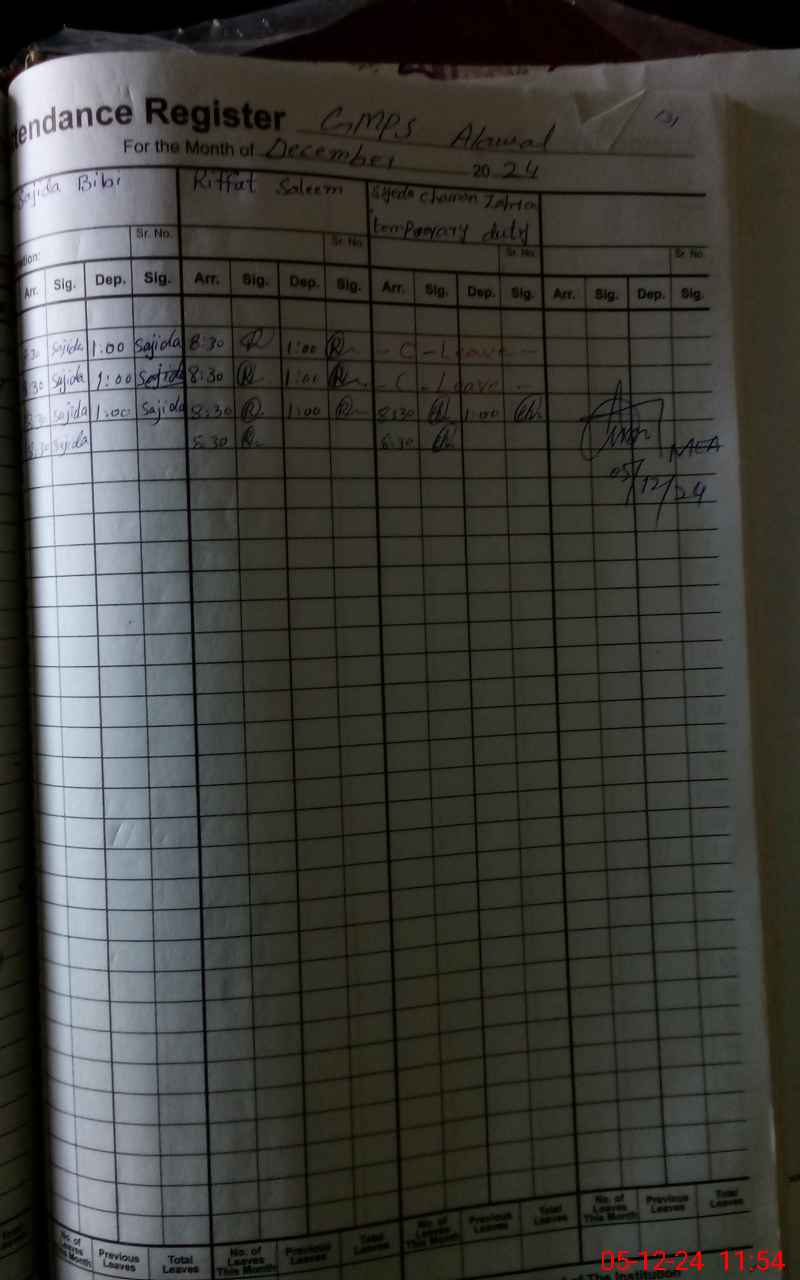 tendance Register GMPS Alawal
131
For the Month of December 2024
Sajida Bibi Riffat Saleem Syeda Chaman Zahra
temporary duty
Sr. No. Sr. No. Sr. No. Sr. No.
ation:
Arr. Sig. Dep. Sig. Arr. Sig. Dep. Sig. Arr. Sig. Dep. Sig. Arr. Sig. Dep. Sig.
:30 Sajida 1:00 Sajida 8:30 R 1:00 R - C - Leave -
8:30 Sajida 1:00 Sajida 8:30 R 1:00 R - C - Leave -
8:30 Sajida 1:00 Sajida 8:30 R 1:00 R 8:30 1:00
8:30 Sajida 8:30 R 8:30
MEA
05/12/24
No. of Leaves This Month Previous Leaves Total Leaves No. of Leaves This Month Previous Leaves Total Leaves No. of Leaves This Month Previous Leaves Total Leaves No. of Leaves This Month Previous Leaves Total Leaves
Of The Institution
05-12-24 11:54